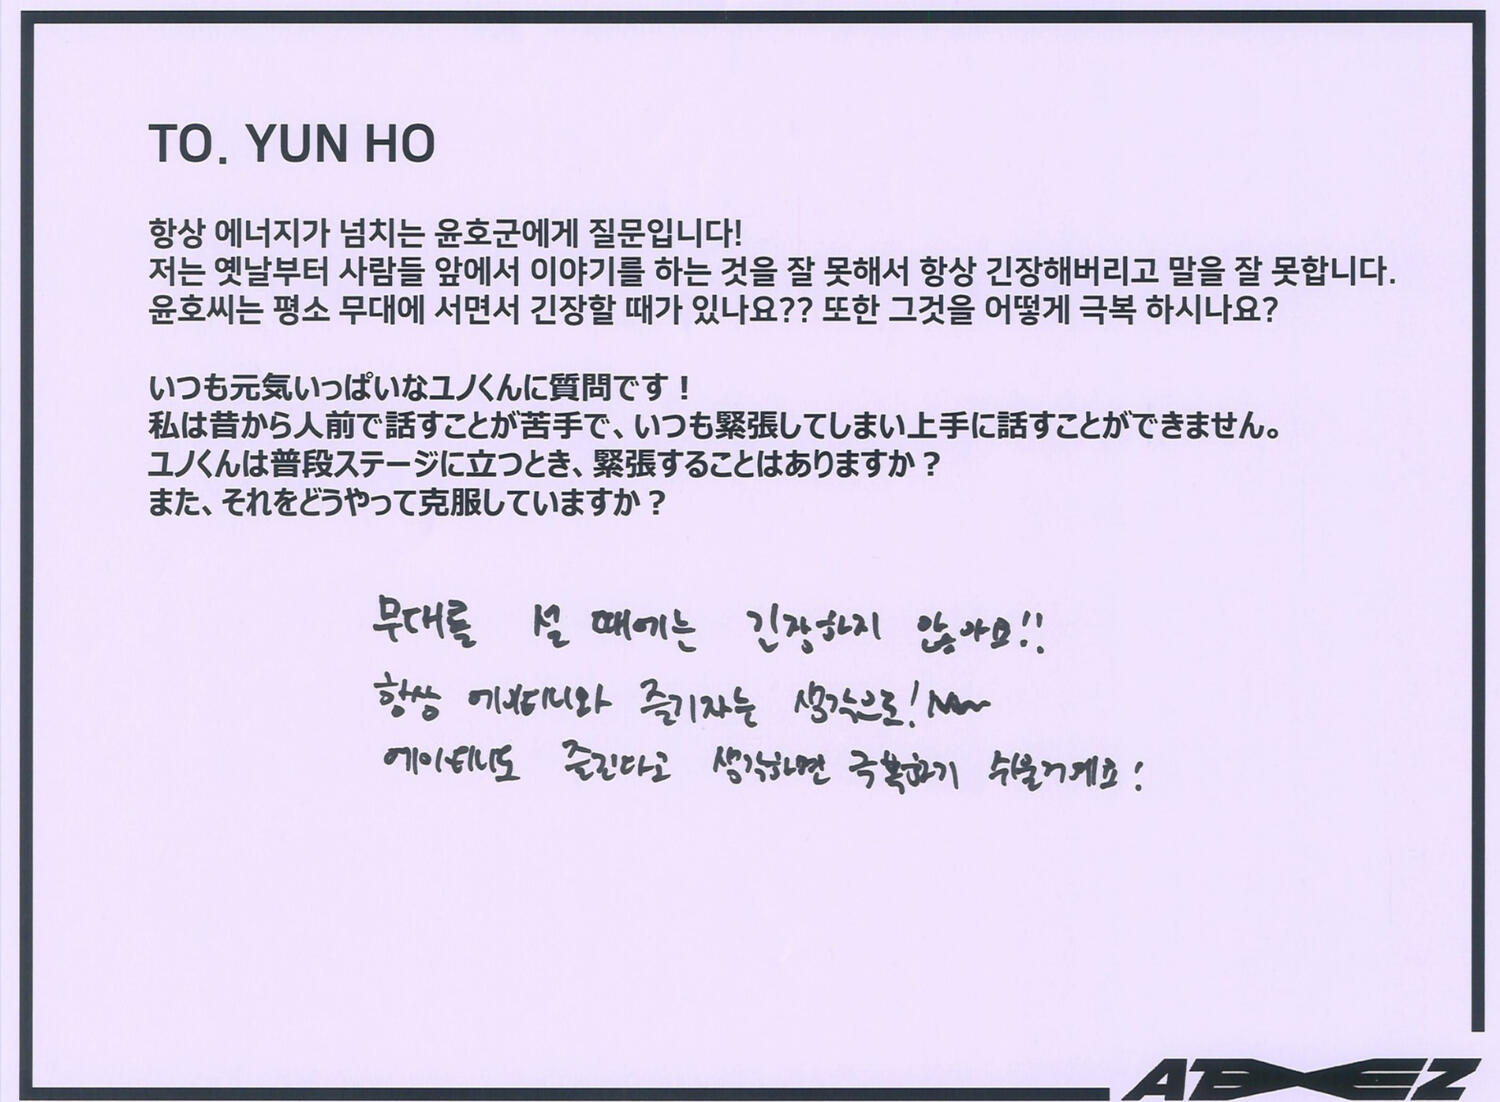 TO. YUN HO
항상 에너지가 넘치는 윤호군에게 질문입니다!
저는 옛날부터 사람들 앞에서 이야기를 하는 것을 잘 못해서 항상 긴장해버리고 말을 잘 못합니다.
윤호씨는 평소 무대에 서면서 긴장할 때가 있나요?? 또한 그것을 어떻게 극복 하시나요?
いつも元気いっぱいなユノくんに質問です！
私は昔から人前で話すことが苦手で、いつも緊張してしまい上手に話すことができません。
ユノくんは普段ステージに立つとき、緊張することはありますか？
また、それをどうやって克服していますか？
무대를 설 때에는 긴장하지 않아요!!
항상 에이티니와 즐기자는 생각으로!
에이티니도 즐긴다고 생각하면 극복하기 쉬울거예요!
ATEEZ